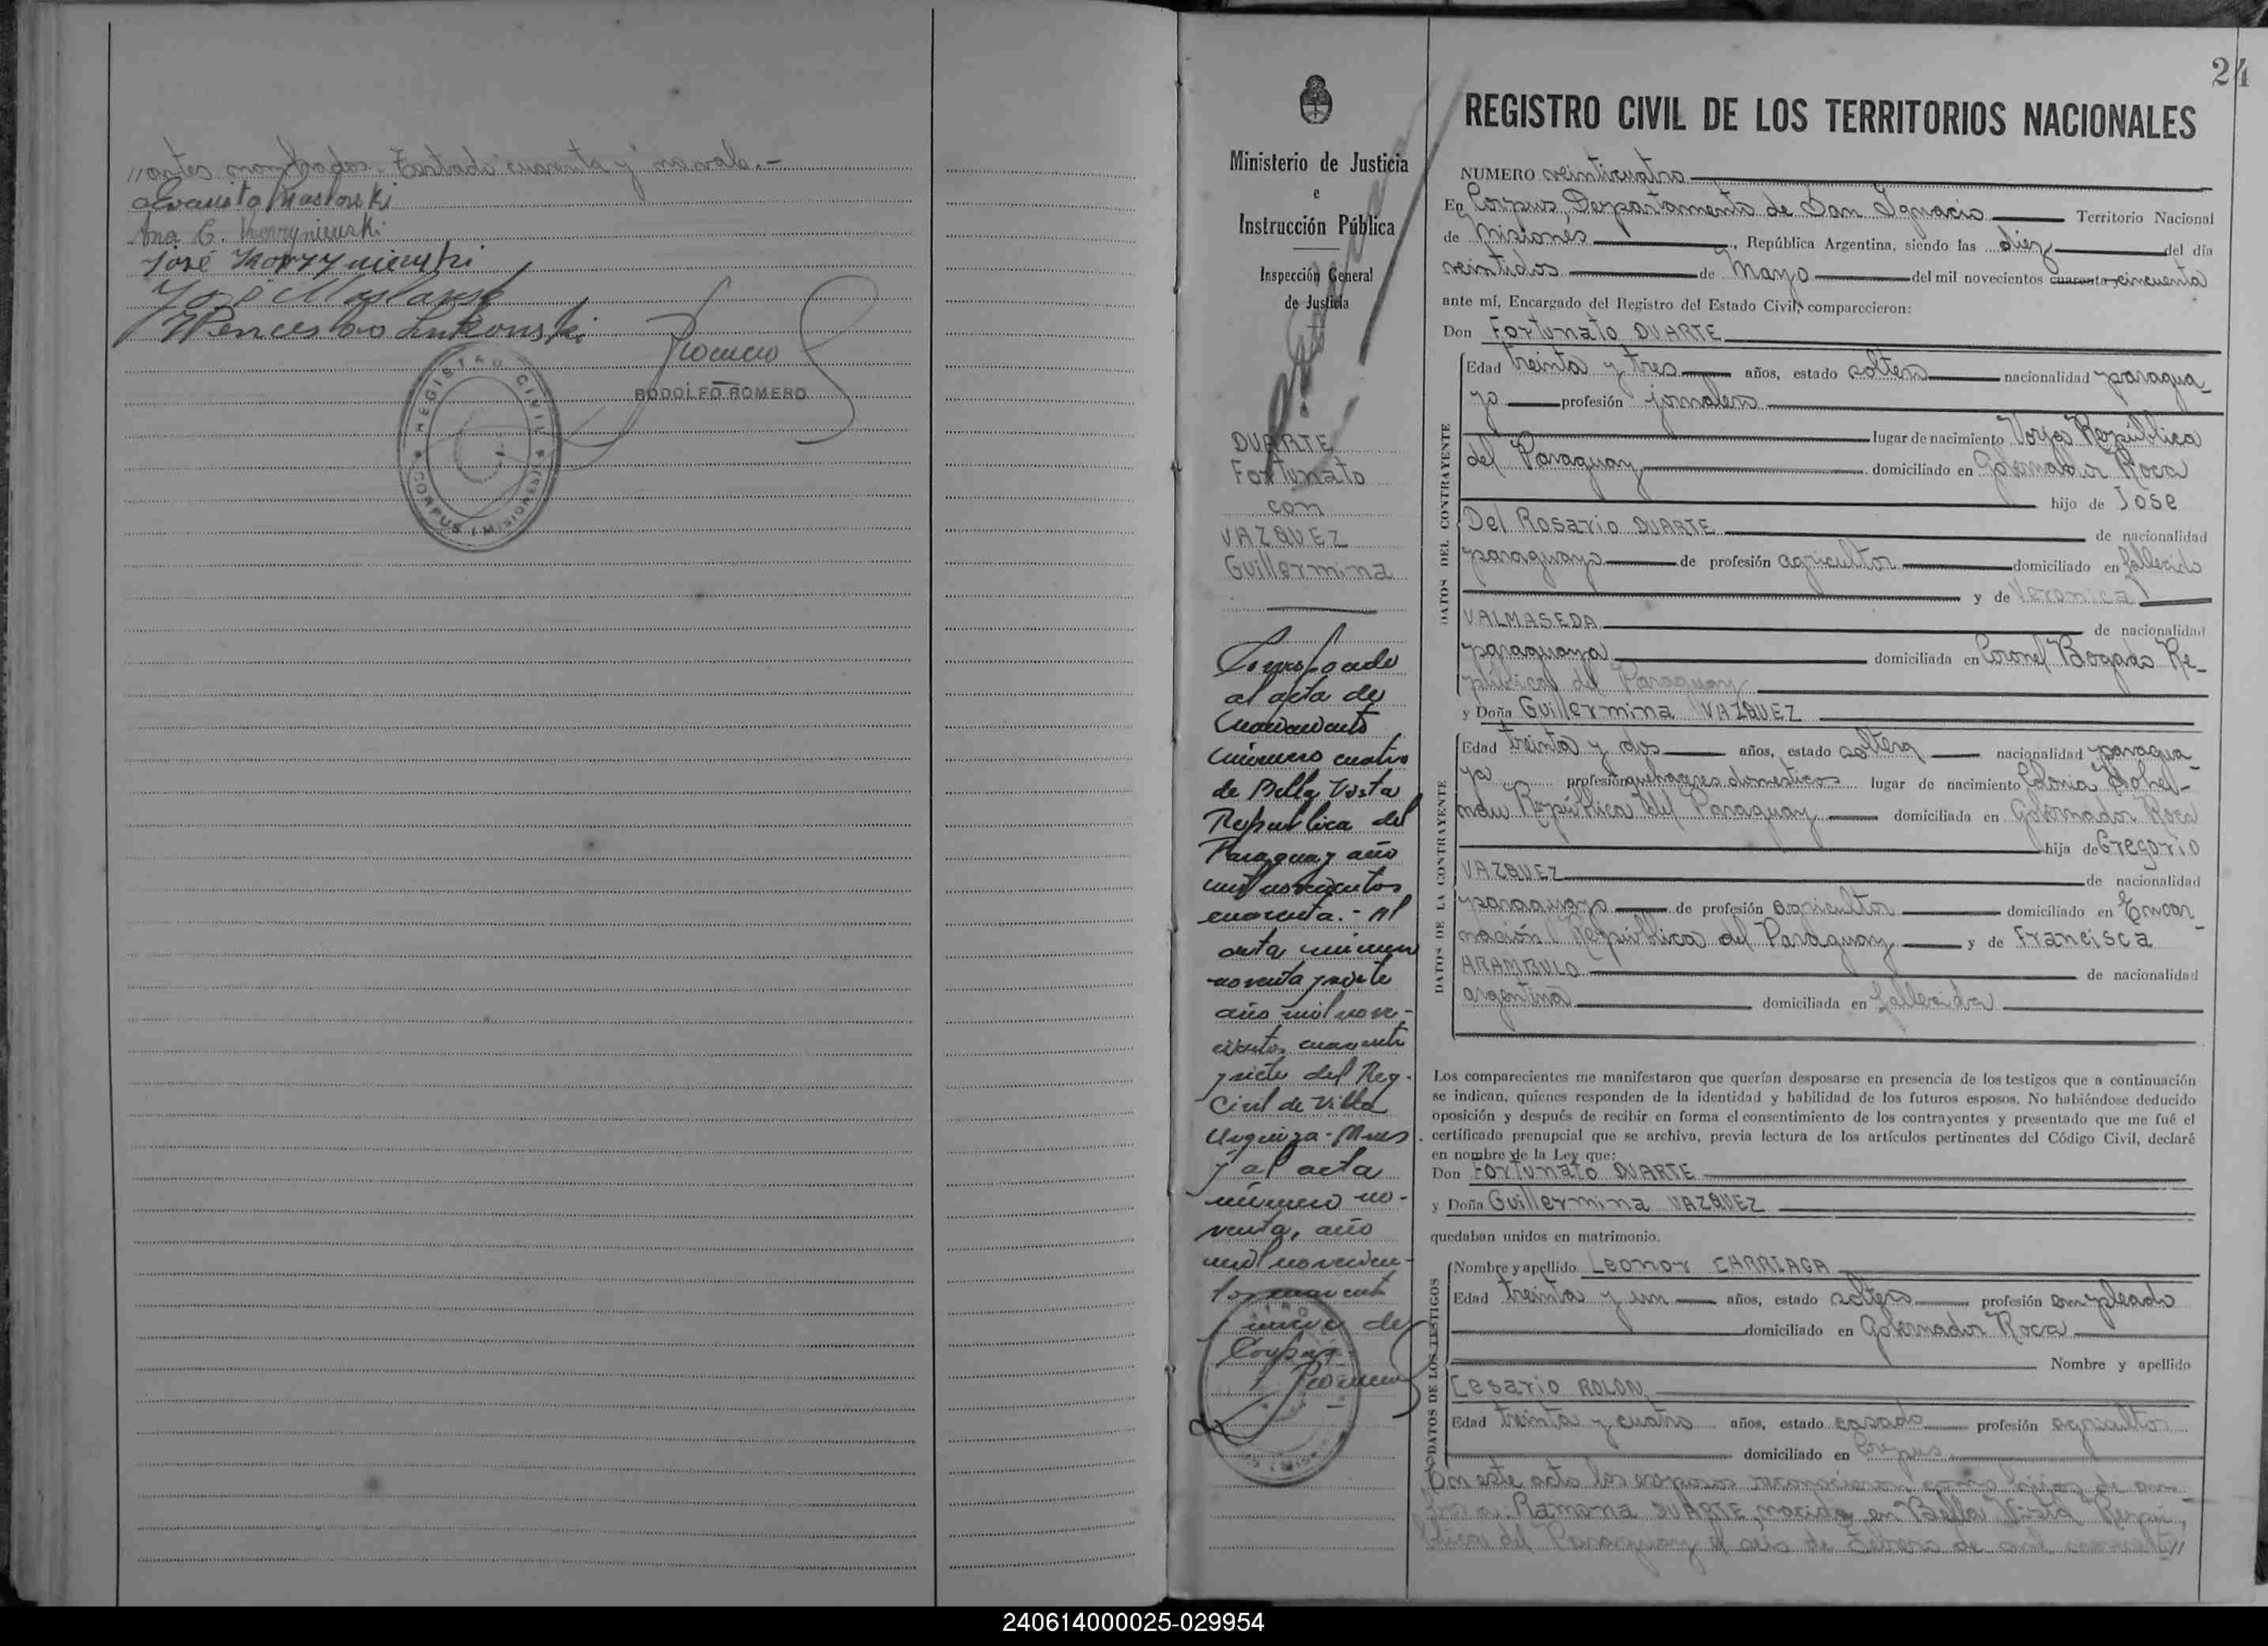 //antes nombrados.- Testado "cuarenta y" no vale.-
Evarista Maslowski
Ana C. Korzyniewski
José Korzyniewski
José
Wenceslao
Romero
RODOLFO ROMERO
REGISTRO CIVIL
CORPUS (MISIONES)
24
Ministerio de Justicia
e
Instrucción Pública
Inspección General
de Justicia
DUARTE
Fortunato
con
VAZQUEZ
Guillermina
al acta de
número cuatro
de Bella Vista
República del
Paraguay año
mil novecientos
cuarenta.- Al
acta número
noventa y siete
año mil nove-
cientos cuarenta
y siete del Reg.
Civil de Villa
Urquiza-Mnes
y al acta
número no-
venta, año
mil novecien-
tos cuarenta
y nueve de
Corpus.
Romero
REGISTRO CIVIL DE LOS TERRITORIOS NACIONALES
NUMERO veinticuatro
En Corpus, Departamento de San Ignacio Territorio Nacional
de Misiones, República Argentina, siendo las diez del día
veintidos de Mayo del mil novecientos cuarenta y cincuenta
ante mí, Encargado del Registro del Estado Civil, comparecieron:
Don Fortunato DUARTE
DATOS DEL CONTRAYENTE
Edad treinta y tres años, estado soltero nacionalidad paragua-
yo profesión jornalero
lugar de nacimiento Borja República
del Paraguay domiciliado en Gobernador Roca
hijo de José
Del Rosario DUARTE de nacionalidad
paraguayo de profesión agricultor domiciliado en fallecido
y de Veronica
VALMASEDA de nacionalidad
paraguaya domiciliada en Coronel Bogado Re-
pública del Paraguay
y Doña Guillermina VAZQUEZ
DATOS DE LA CONTRAYENTE
Edad treinta y dos años, estado soltera nacionalidad paragua-
ya profesión quehaceres domesticos lugar de nacimiento Colonia Hohe-
nau República del Paraguay domiciliada en Gobernador Roca
hija de Gregorio
VAZQUEZ de nacionalidad
paraguayo de profesión agricultor domiciliado en Encar-
nación República del Paraguay y de Francisca
ARAMBULO de nacionalidad
argentina domiciliada en fallecida
Los comparecientes me manifestaron que querían desposarse en presencia de los testigos que a continuación
se indican, quienes responden de la identidad y habilidad de los futuros esposos. No habiéndose deducido
oposición y después de recibir en forma el consentimiento de los contrayentes y presentado que me fué el
certificado prenupcial que se archiva, previa lectura de los artículos pertinentes del Código Civil, declaré
en nombre de la Ley que:
Don Fortunato DUARTE
y Doña Guillermina VAZQUEZ
quedaban unidos en matrimonio.
DATOS DE LOS TESTIGOS
Nombre y apellido Leonor CARRIAGA
Edad treinta y un años, estado soltero profesión empleado
domiciliado en Gobernador Roca
Nombre y apellido
Cesario ROLON
Edad treinta y cuatro años, estado casado profesión agricultor
domiciliado en Corpus
En este acto los esposos reconocieron como hijos de am-
bos a: Ramona DUARTE, nacida en Bella Vista Repú-
blica del Paraguay el seis de Febrero de mil
240614000025-029954